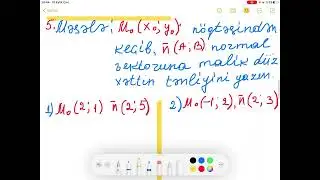 5. Məsələ, M₀(x₀; y₀) nöqtəsindən
keçib, n̄(A; B) normal
vektoruna malik düz
xəttin tənliyini yazın.
1) M₀(2; 1) n̄(2; 5) 2) M₀(-1; 2), n̄(2; 3)